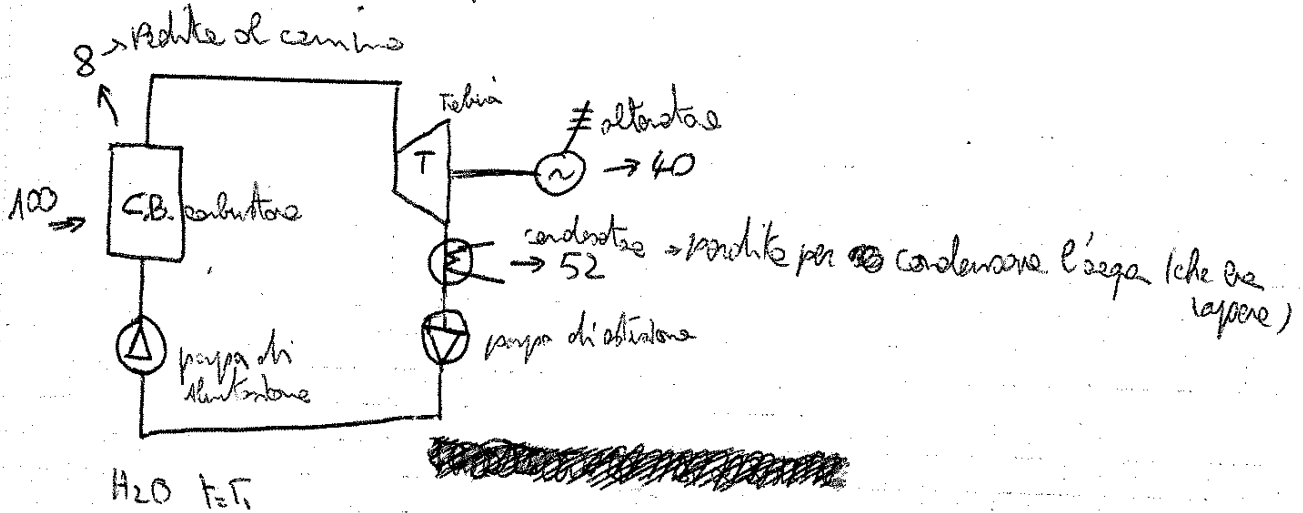 8 → perdite al camino
Turbina
alternatore
T
→ 40
100
C.B. combustore
condensatore → perdite per condensare l'acqua (che era
→ 52
vapore)
pompa di estrazione
pompa di
alimentazione
H2O